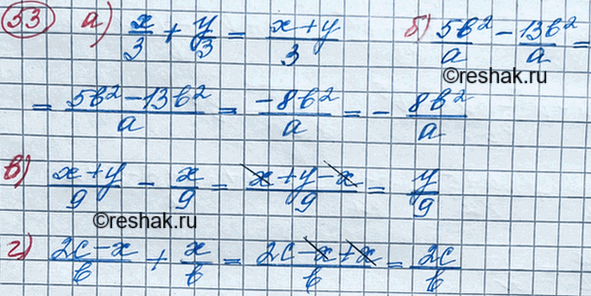 53 а) x/3 + y/3 = (x+y)/3 б) 5b²/a − 13b²/a =
©reshak.ru
= (5b²−13b²)/a = −8b²/a = − 8b²/a
в) (x+y)/9 − x/9 = (x+y−x)/9 = y/9
©reshak.ru
г) (2c−x)/b + x/b = (2c−x+x)/b = 2c/b